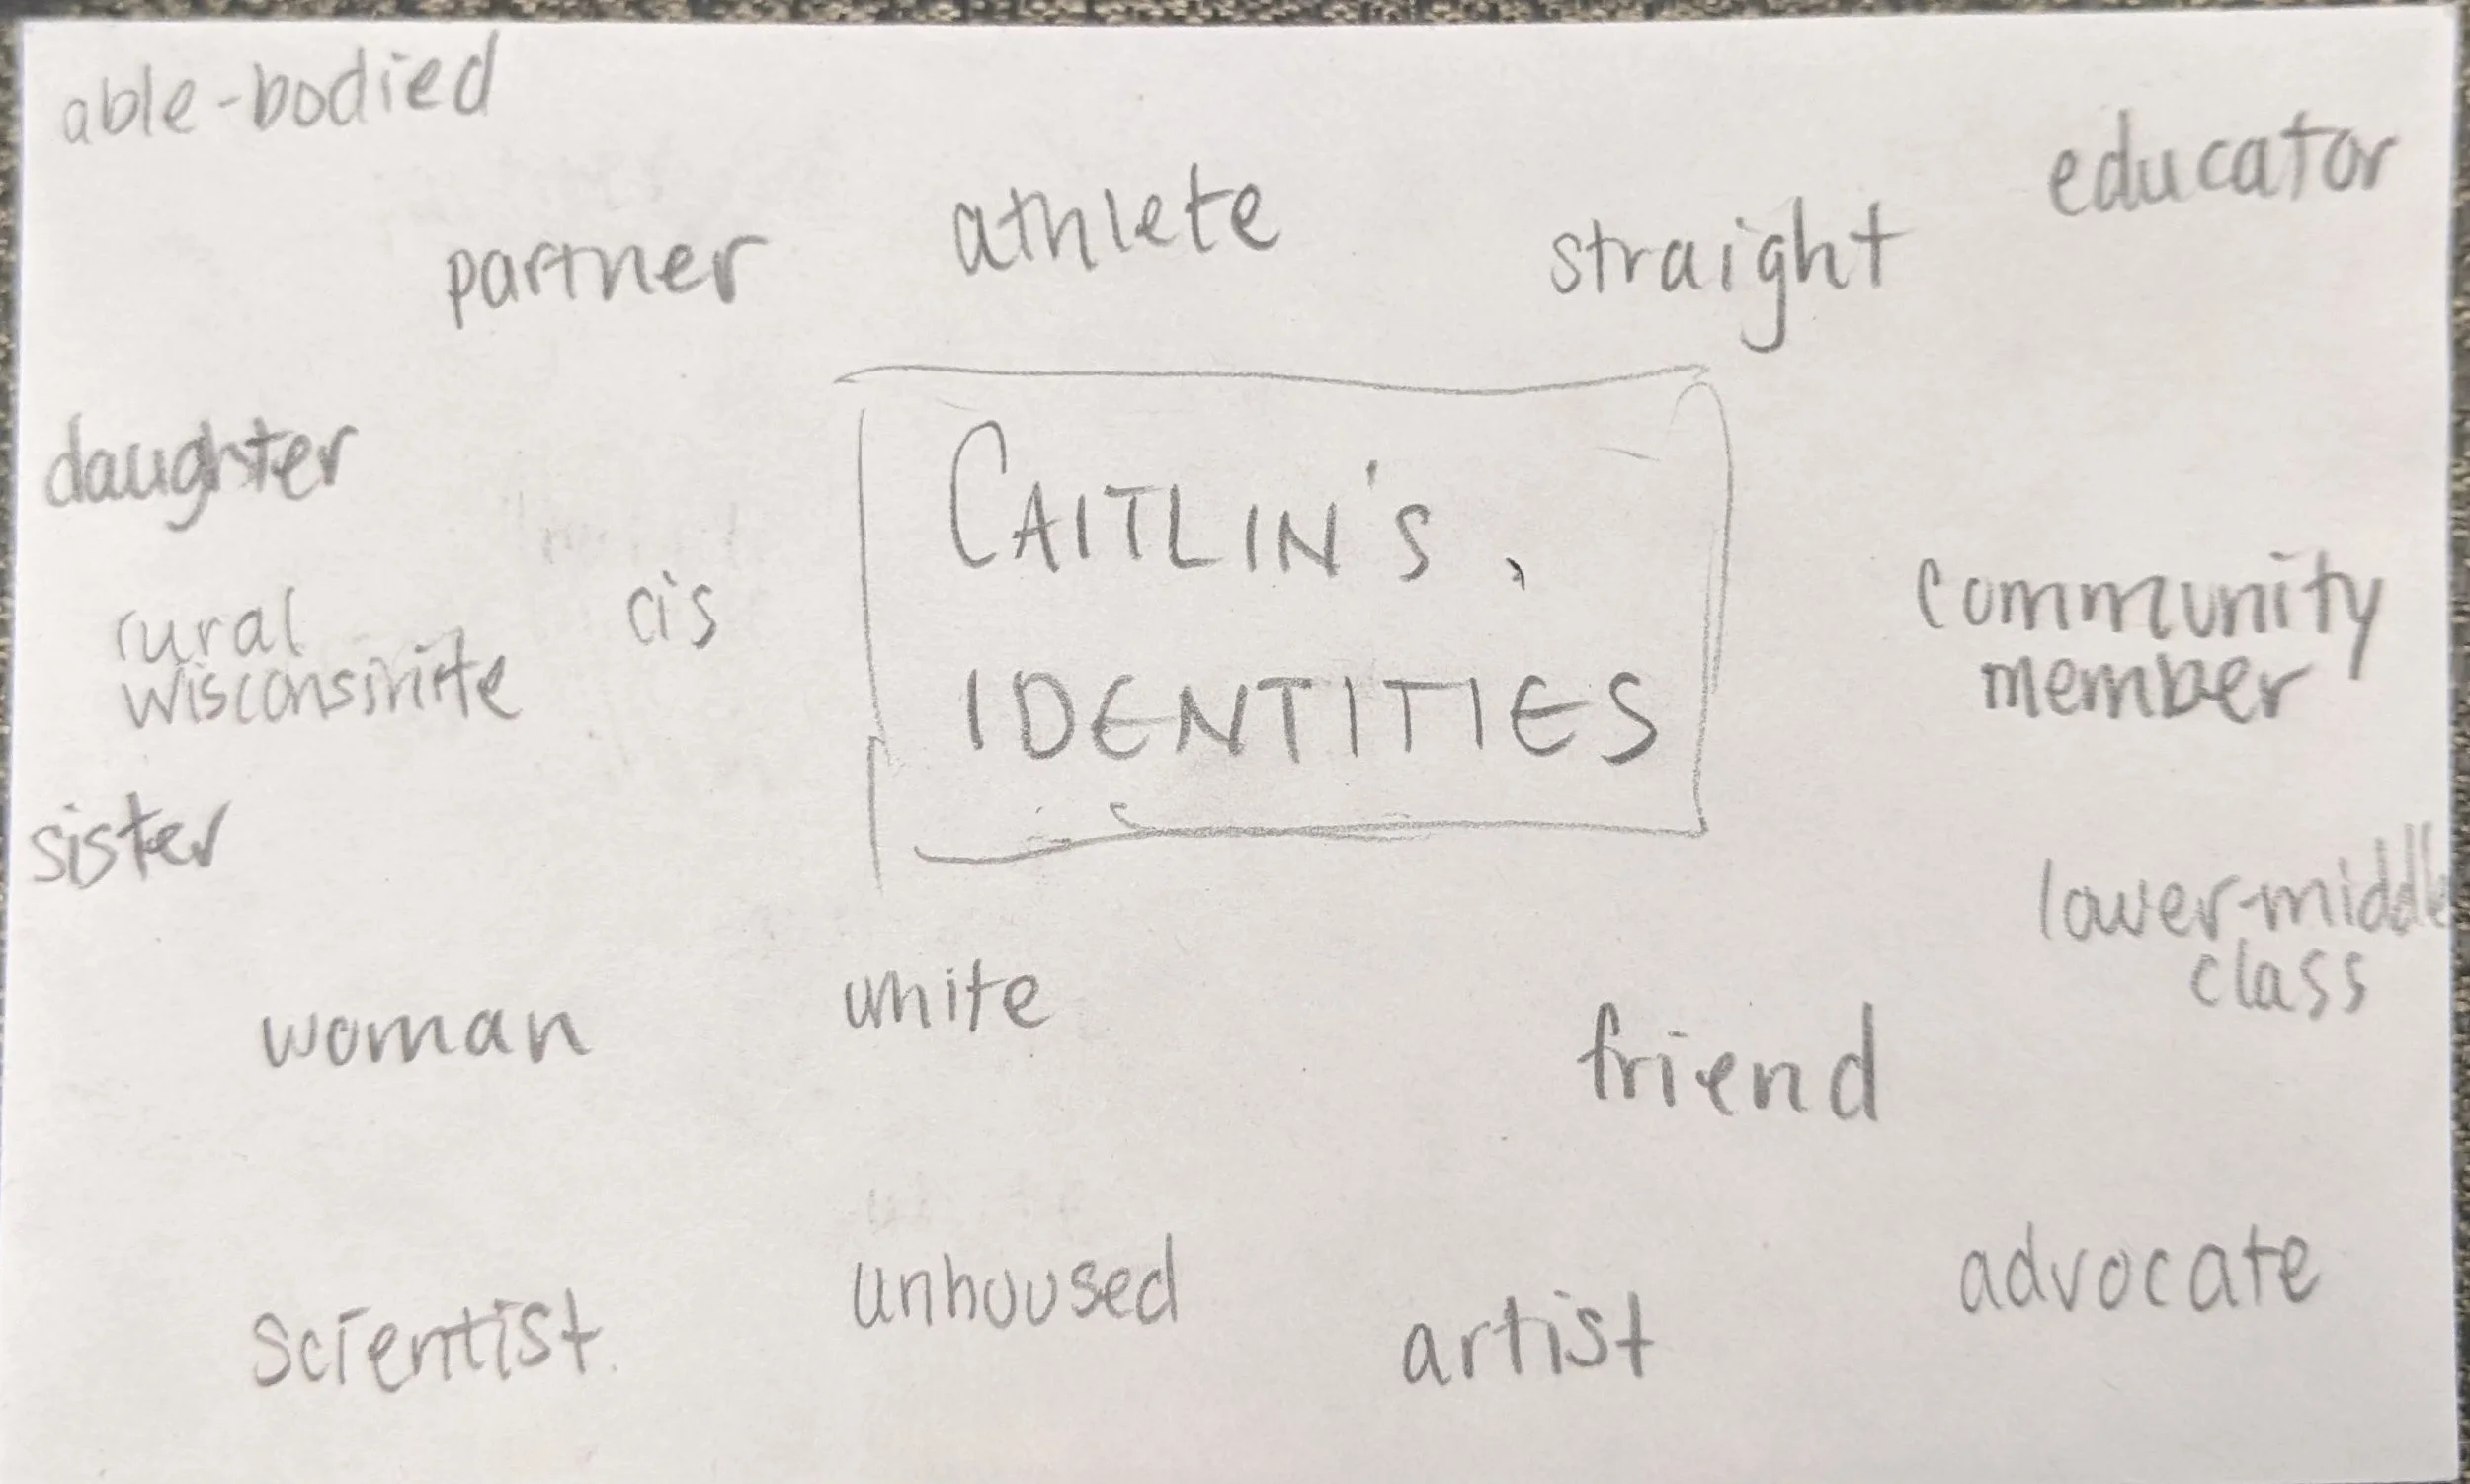 able-bodied
educator
athlete
straight
partner
daughter
CAITLIN'S
IDENTITIES
rural
wisconsinite
cis
community
member
sister
lower-middle
class
woman
white
friend
unhoused
advocate
scientist
artist